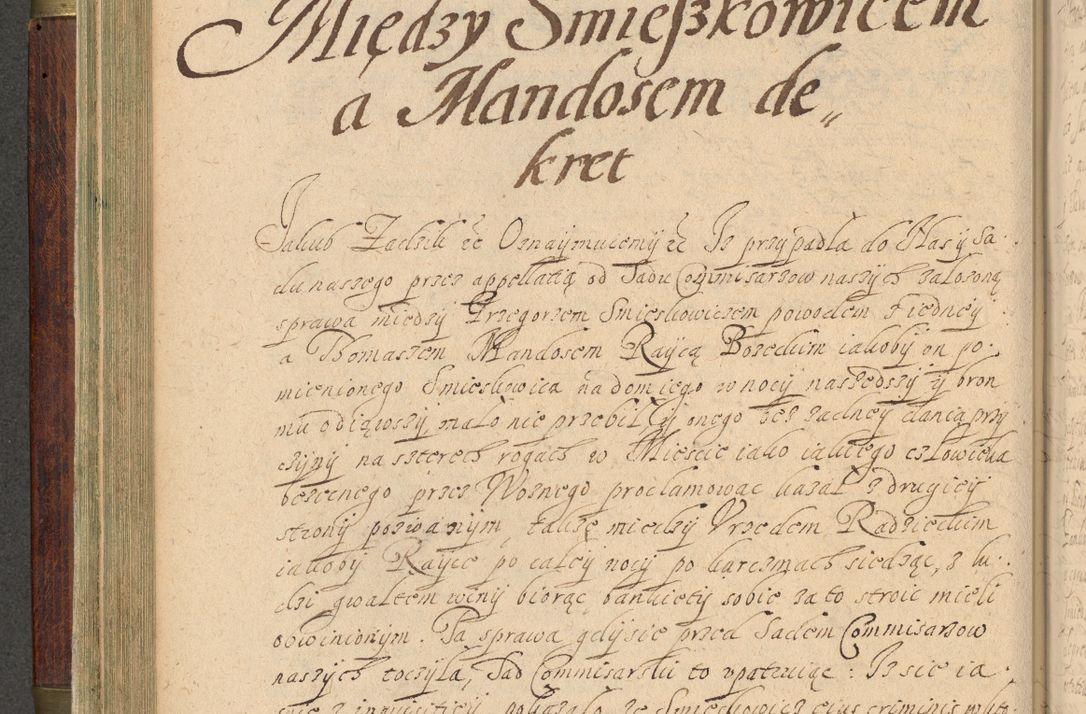 Między Smieszkowicem
a Mandosem de„
kret
Jakub Zadzik etc Oznaymuiemy etc Iz przypadła do Nas y Sa„
du naszego przez appellatią od Sadu Commisarzow naszych założoną
sprawa między Grzegorzem Smieskowiczem powodem z iedney
a Thomaszem Mandosem Raycą Bozeckim iakoby on po„
mienionego Smieskowica na dom iego w nocy naszedszy y bron
mu odiąwszy mało nie przebił y onego bez zadney dania przy
czyny na szterech rogach w Mieście iako iakiego człowieka
bezecnego przez Woznego proclamowac kazał z drugiey
strony pozwanym, takze miedzy Vrzedem Radzieckim
iakoby Rayce po całey nocy po karczmach siedząc, z lu„
dzi gwałtem winy biorąc bankiety sobie za to stroic mieli
obwinionym. Ta sprawa gdy sie przed Sadem Commisarzow
naszych toczyła, Sad Commisarski to vpatruiąc: Iz sie ia„
snie z inquisitiey pokazało ze Smieskowicz eius criminis